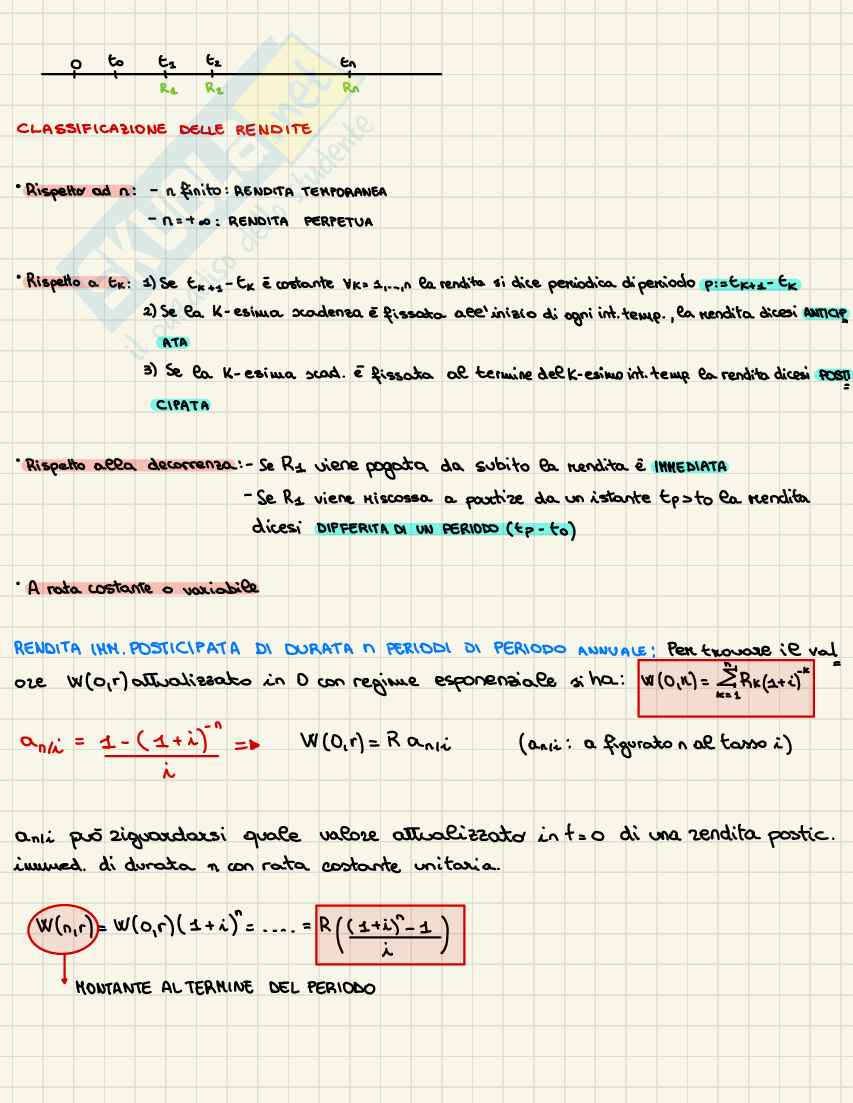 0 t₀ t₁ t₂ tₙ
R₁ R₂ Rₙ
CLASSIFICAZIONE DELLE RENDITE
• Rispetto ad n: - n finito: RENDITA TEMPORANEA
- n=+∞: RENDITA PERPETUA
• Rispetto a tₖ: 1) Se tₖ₊₁-tₖ è costante ∀k=1,...,n la rendita si dice periodica di periodo p:=tₖ₊₁-tₖ
2) Se la K-esima scadenza è fissata all'inizio di ogni int. temp., la rendita dicesi ANTICIP
ATA
3) Se la K-esima scad. è fissata al termine del K-esimo int. temp la rendita dicesi POSTI
CIPATA
• Rispetto alla decorrenza: - Se R₁ viene pagata da subito la rendita è IMMEDIATA
- Se R₁ viene riscossa a partire da un istante tp>t₀ la rendita
dicesi DIFFERITA DI UN PERIODO (tp-t₀)
• A rata costante o variabile
RENDITA IMM. POSTICIPATA DI DURATA n PERIODI DI PERIODO ANNUALE: Per trovare il val
ore W(0,r) attualizzato in 0 con regime esponenziale si ha: W(0,r) = Σₖ₌₁ⁿ Rₖ(1+i)⁻ᵏ
a_{n/i} = (1-(1+i)⁻ⁿ)/i ⇒ W(0,r) = R a_{n/i} (a_{n/i}: a figurato n al tasso i)
a_{n/i} può riguardarsi quale valore attualizzato in t=0 di una rendita postic.
immed. di durata n con rata costante unitaria.
W(n,r) = W(0,r)(1+i)ⁿ = .... = R(((1+i)ⁿ-1)/i)
MONTANTE AL TERMINE DEL PERIODO
SKUOLA.net
il paradiso dello studente